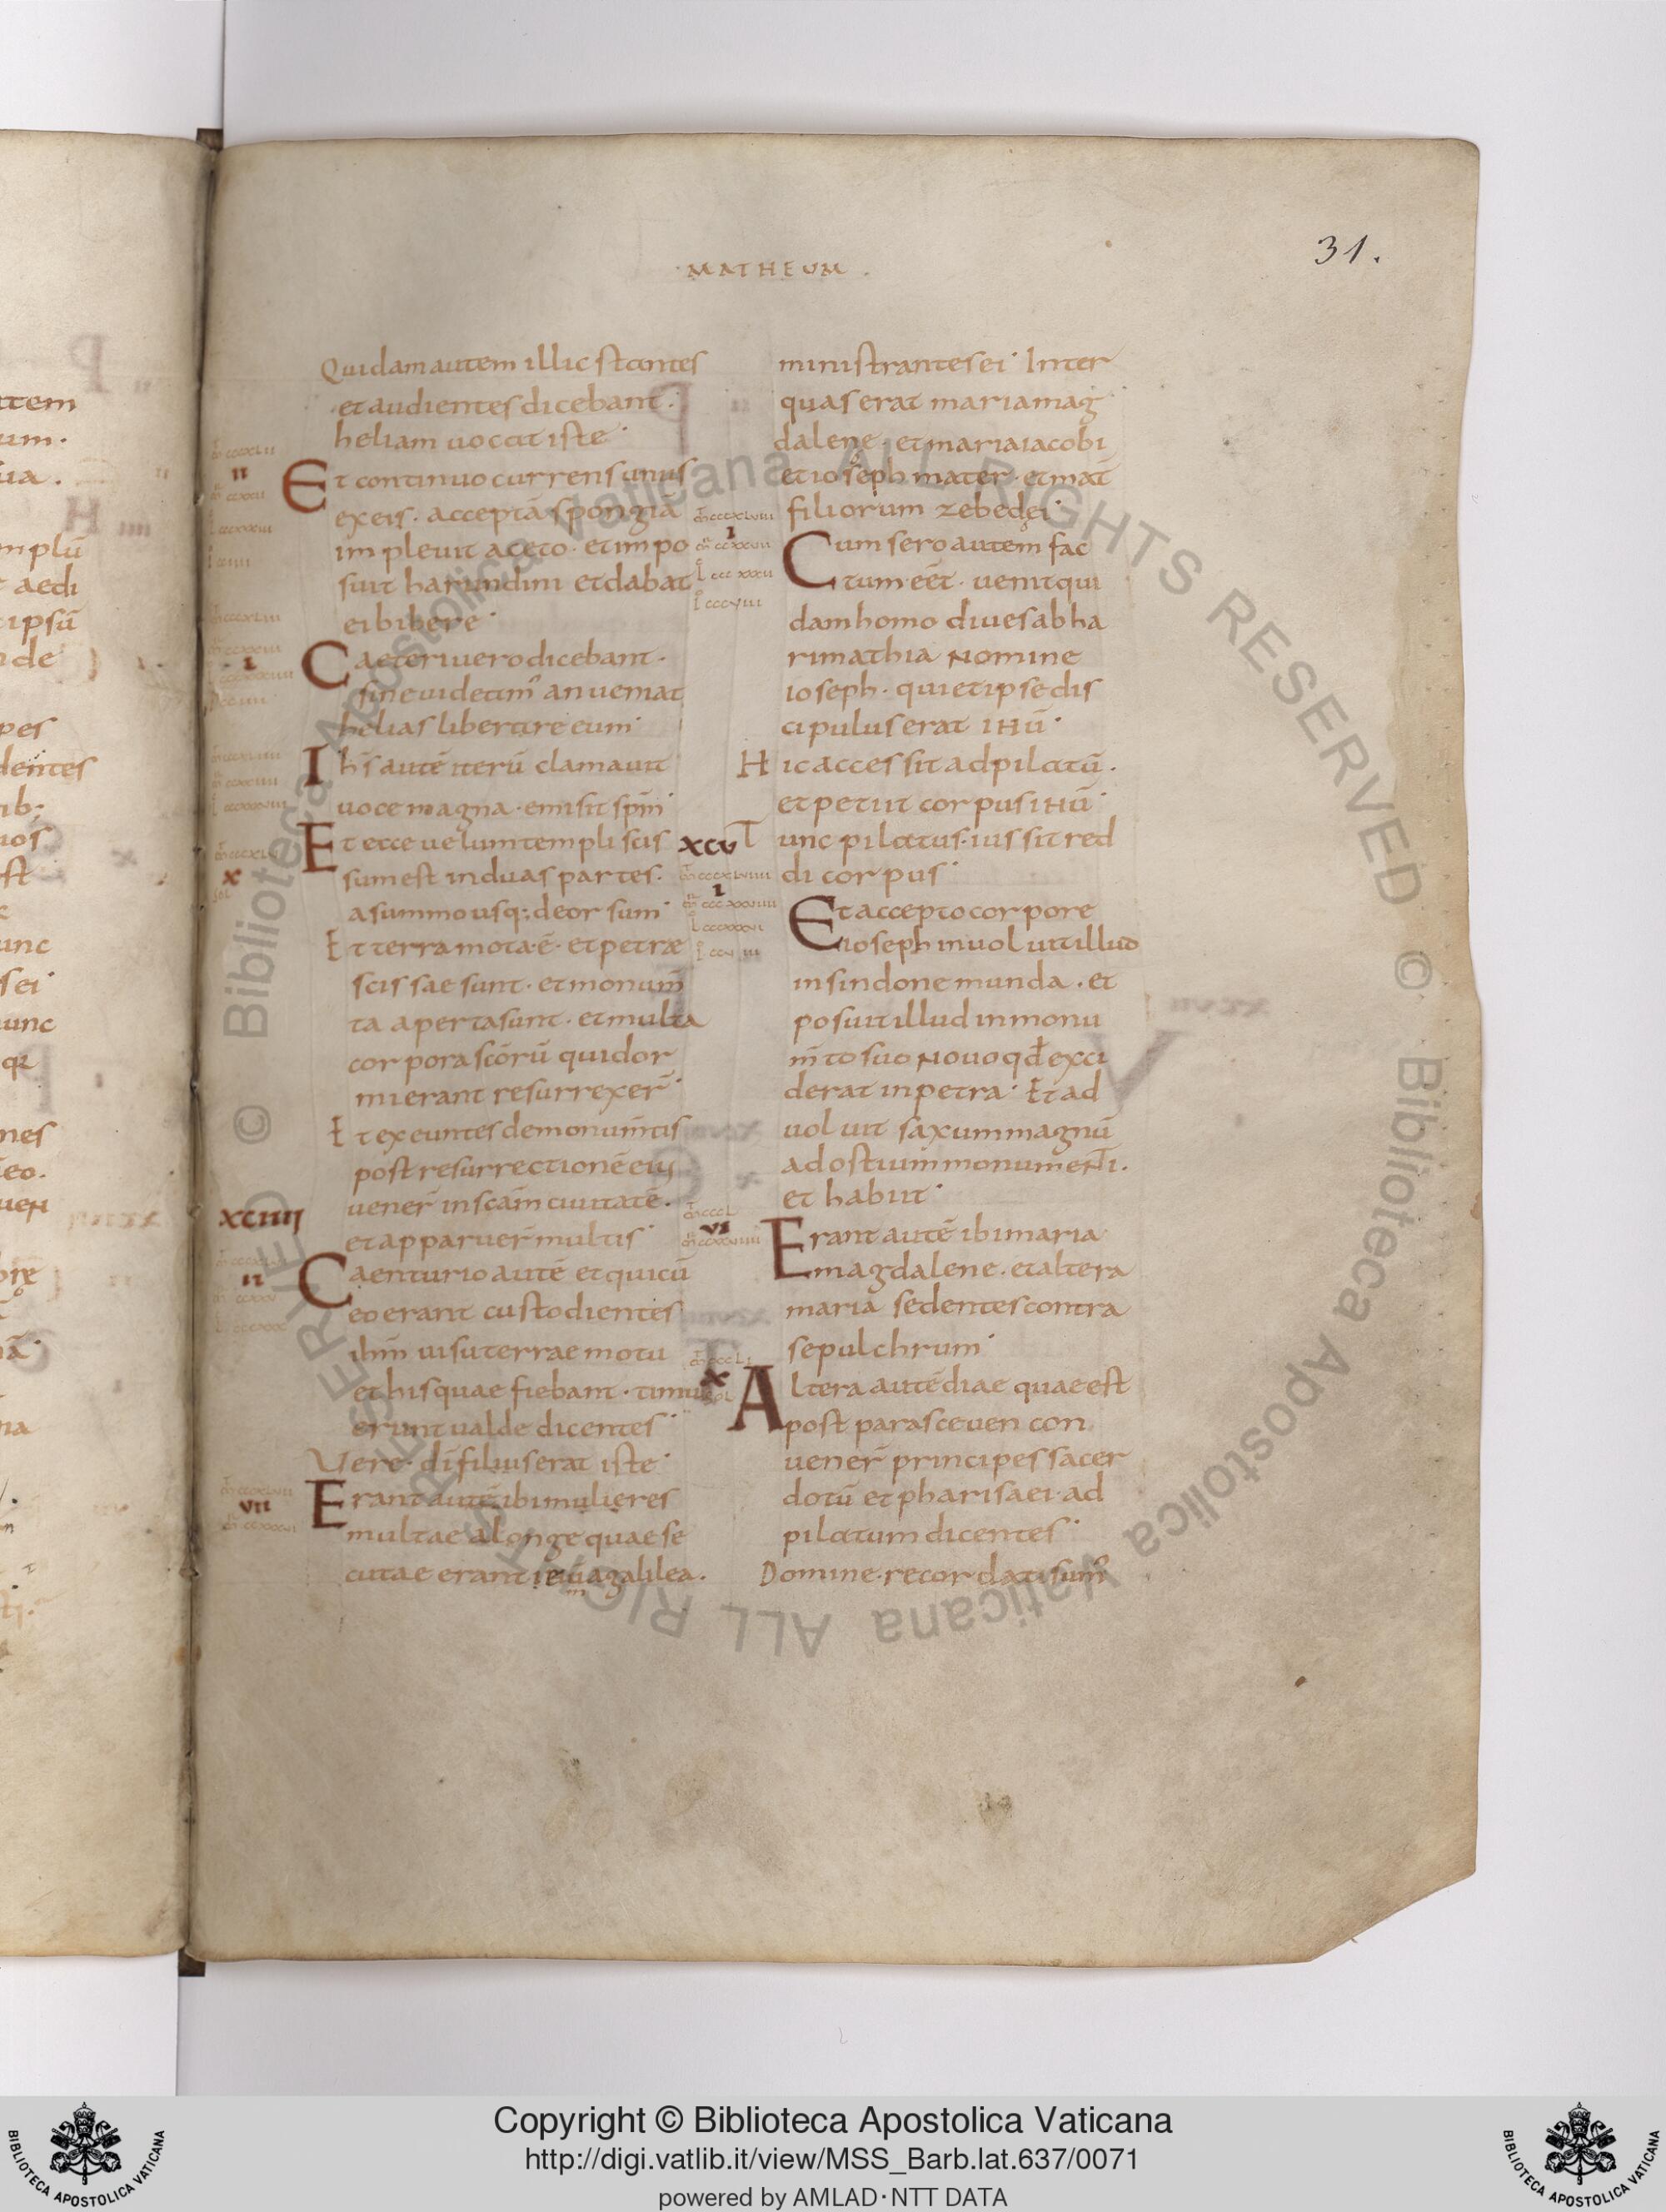 31.
·MATHEUM·
Quidam autem illic stantes
et audientes dicebant·
heliam uocat iste·
Et continuo currens unus
ex eis· acceptā spongiā
impleuit aceto· et impo
suit harundini et dabat
ei bibere·
Caeteri uero dicebant·
sine uideam᾽ an ueniat
helias liberare eum·
Ihs̄ autē iterū clamauit
uoce magna· emisit sp̄m·
Et ecce uelum templi scis
sum est in duas partes·
a summo usq; deorsum·
Et terra mota ·ē· et petrae
scissae sunt· et monum̄
ta aperta sunt· et multa
corpora sc̄orū qui dor
mierant resurrexer̄·
Et exeuntes de monum̄tis
post resurrectionē eius
uener̄ in sc̄am ciuitatē·
et apparuer̄ multis·
XCIIII
II
Caenturio autē et qui cū
eo erant custodientes
ihm̄ uiso terrae motu
et his quae fiebant· timu
erunt ualde dicentes·
Vere· dī filius erat iste·
VII
Erant autē ibi mulieres
multae a longe quae se
cutae erant iesū a galilea·
ministrantes ei· Inter
quas erat maria mag
dalene· et maria iacobi
et ioseph mater· et mat̄
filiorum zebedęi·
I
Cum sero autem fac
tum eēt· uenit qui
dam homo diues ab ha
rimathia nomine
ioseph· qui et ipse dis
cipulus erat IHŪ·
Hic accessit ad pilatū·
et petiit corpus IHŪ·
XCV
Tunc pilatus· iussit red
di corpus·
I
Et accepto corpore
ioseph inuoluit illud
in sindone munda· et
posuit illud in monu
m̄to suo nouo qđ exci
derat in petra· Et ad
uoluit saxum magnū
ad ostium monumenti·
et habiit·
VI
Erant autē ibi maria
magdalene· et altera
maria sedentes contra
sepulchrum·
X
Altera autē diae quae est
post parasceuen con
uener̄ principes sacer
dotū et pharisaei· ad
pilatum dicentes·
Domine· recordati sum᾽
Copyright © Biblioteca Apostolica Vaticana
http://digi.vatlib.it/view/MSS_Barb.lat.637/0071
powered by AMLAD·NTT DATA
BIBLIOTECA APOSTOLICA VATICANA
BIBLIOTECA APOSTOLICA VATICANA